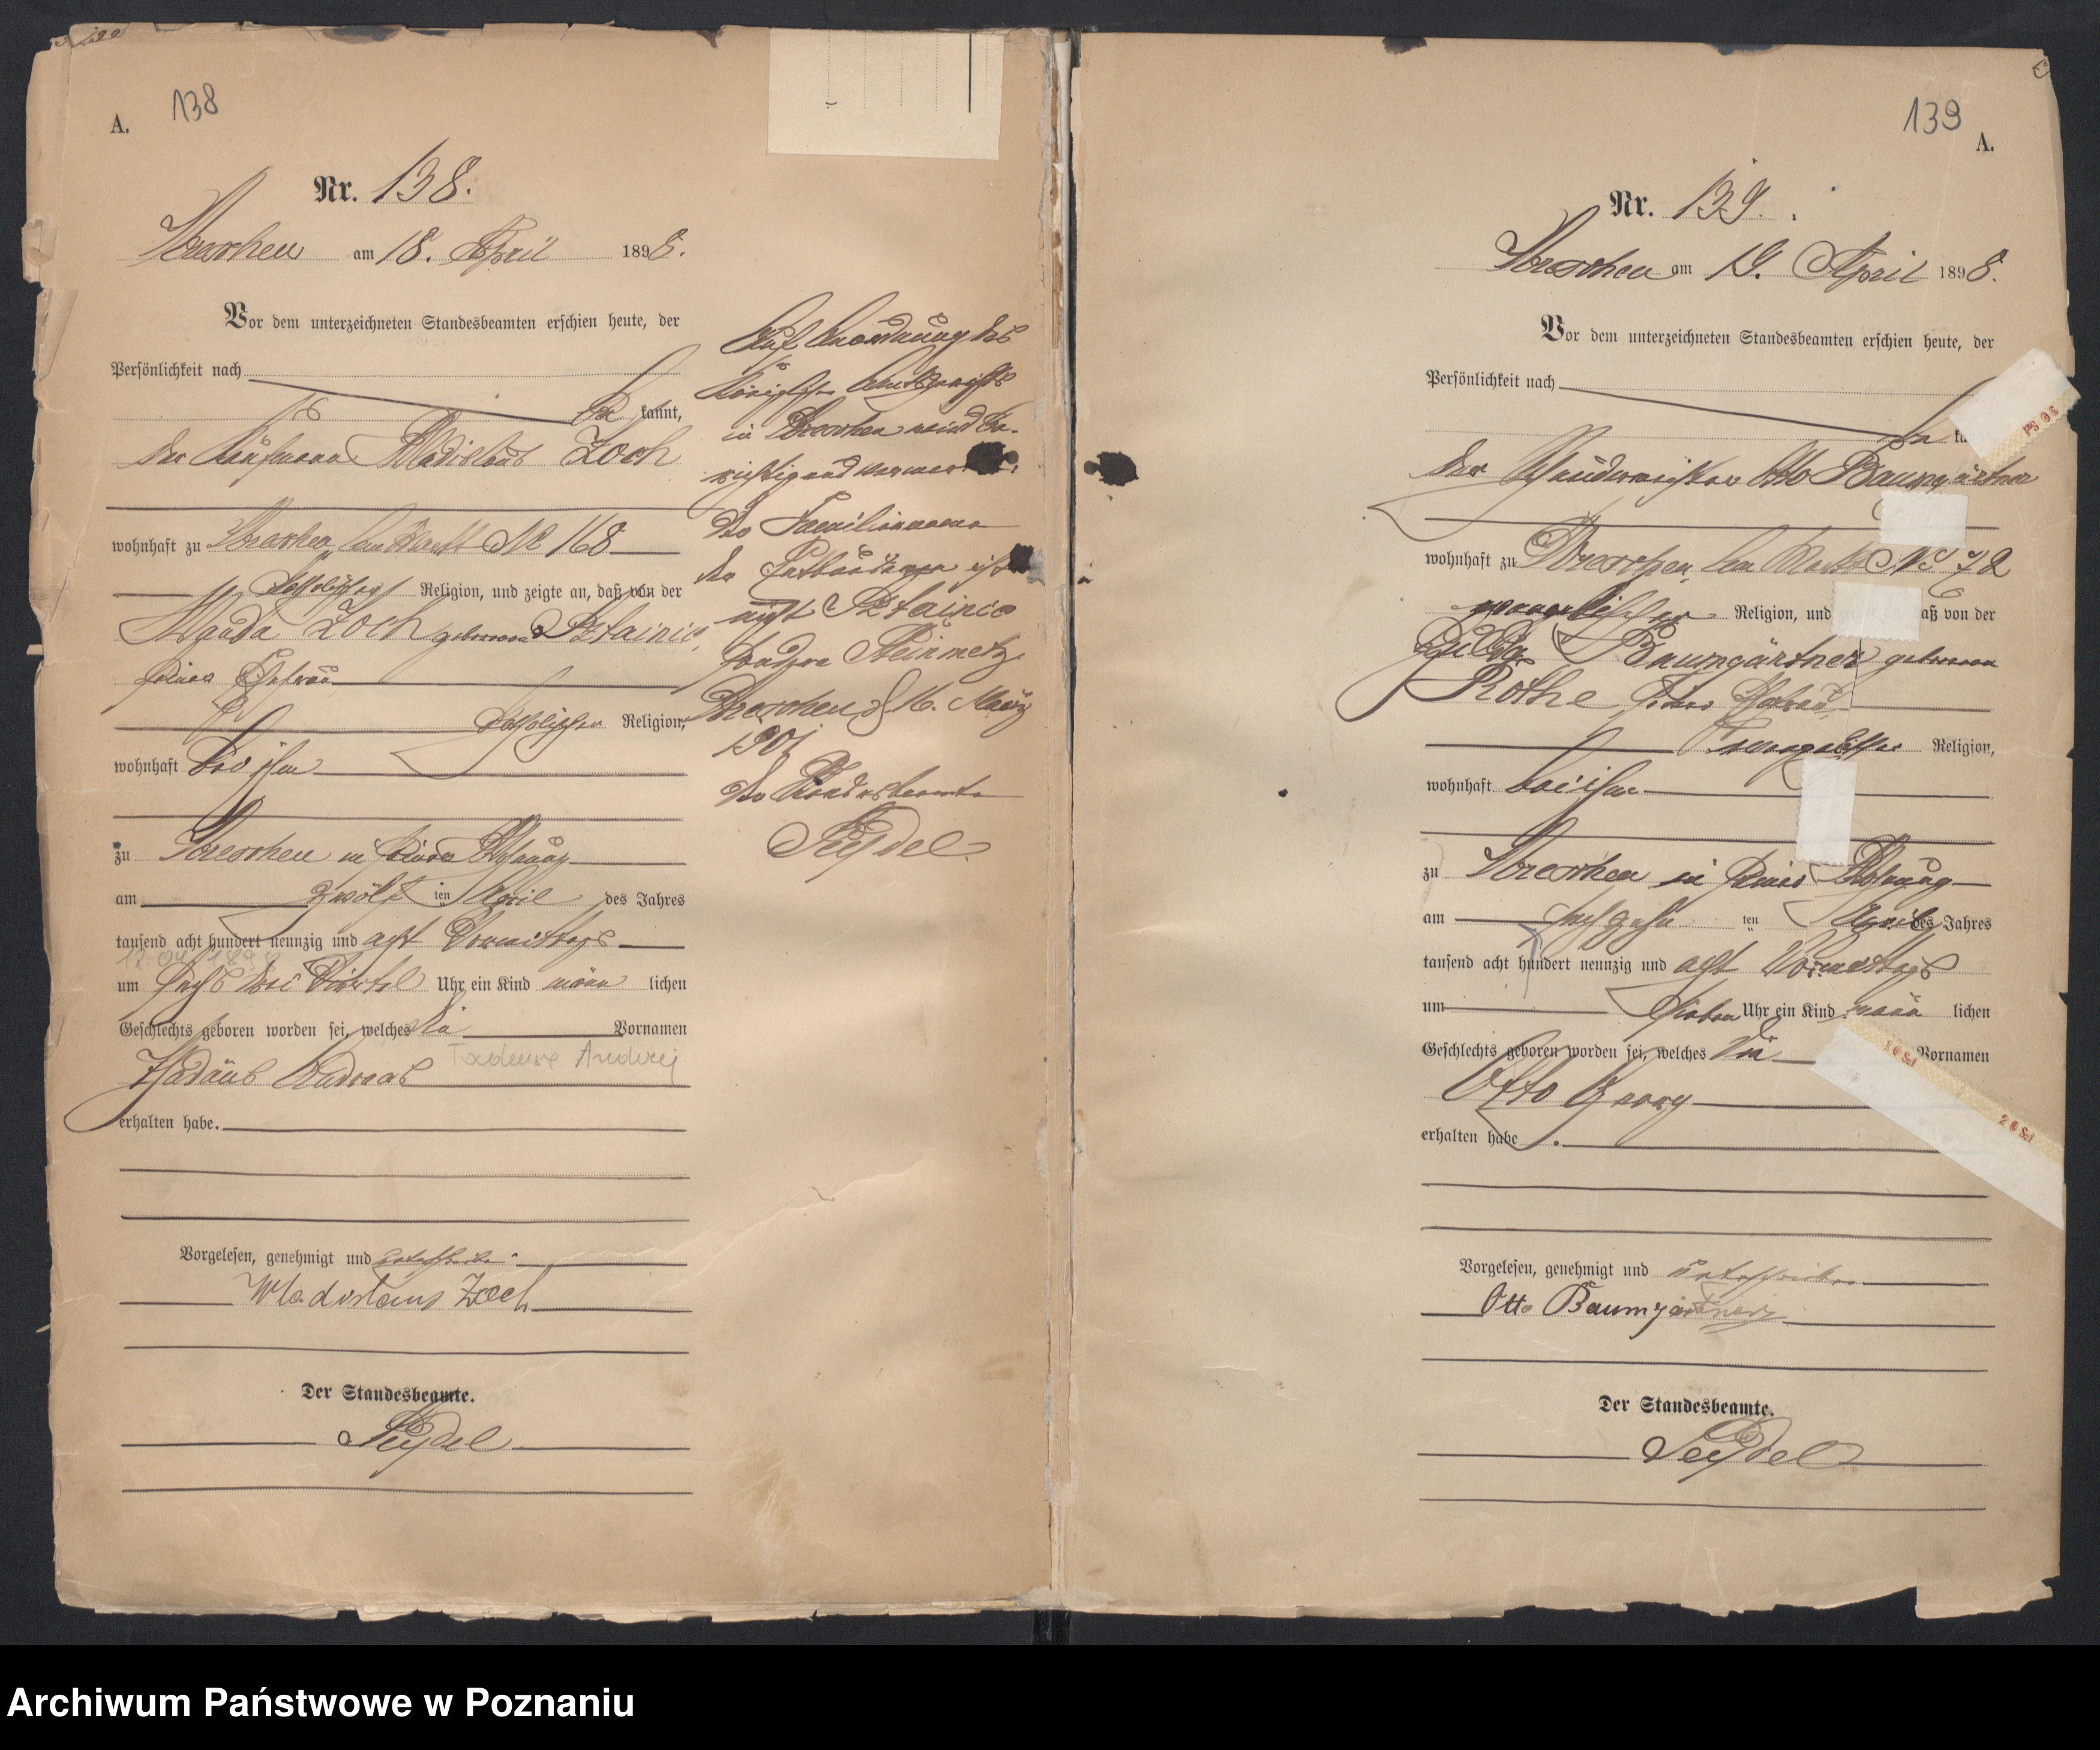 138
A.
Nr. 138.
Wreschen am 18. April 1898.
Vor dem unterzeichneten Standesbeamten erschien heute, der
Persönlichkeit nach
be kannt,
der Kaufmann Wladislaus Zoch
wohnhaft zu Wreschen, am Markt No 168
katholischer Religion, und zeigte an, daß von der
Agada Zoch geborenen
seiner Ehefrau
katholischer Religion,
wohnhaft bei ihm
zu Wreschen in seiner Wohnung
am zwölf ten April des Jahres
tausend acht hundert neunzig und acht Vormittags
um sechs drei Viertel Uhr ein Kind männ lichen
Geschlechts geboren worden sei, welches die Vornamen
Thadäus Andreas Tadeusz Andrzej
erhalten habe.
Vorgelesen, genehmigt und
Wladislaus Zoch
Der Standesbeamte.
Seydel
Auf Anordnung des
Königlichen Amtsgerichts
in Wreschen wird be-
richtigend
Der Familienname
der Entbundenen ist
nicht
sondern Steinmetz.
Wreschen, d 16. März
1901
Der Standesbeamte
Seydel.
139
A.
Nr. 139.
Wreschen am 19. April 1898.
Vor dem unterzeichneten Standesbeamten erschien heute, der
Persönlichkeit nach
der Otto Baumgärtner
wohnhaft zu Wreschen, am Markt No 72
evangelischer Religion, und daß von der
Baumgärtner geborenen
Rothe seiner Ehefrau,
evangelischer Religion,
wohnhaft bei ihm
zu Wreschen in seiner Wohnung
am sechzehn ten April des Jahres
tausend acht hundert neunzig und acht Vormittags
um sieben Uhr ein Kind männ lichen
Geschlechts geboren worden sei, welches die Vornamen
Otto Georg
erhalten habe.
Vorgelesen, genehmigt und unterschrieben
Otto Baumgärtner
Der Standesbeamte.
Seydel
Archiwum Państwowe w Poznaniu